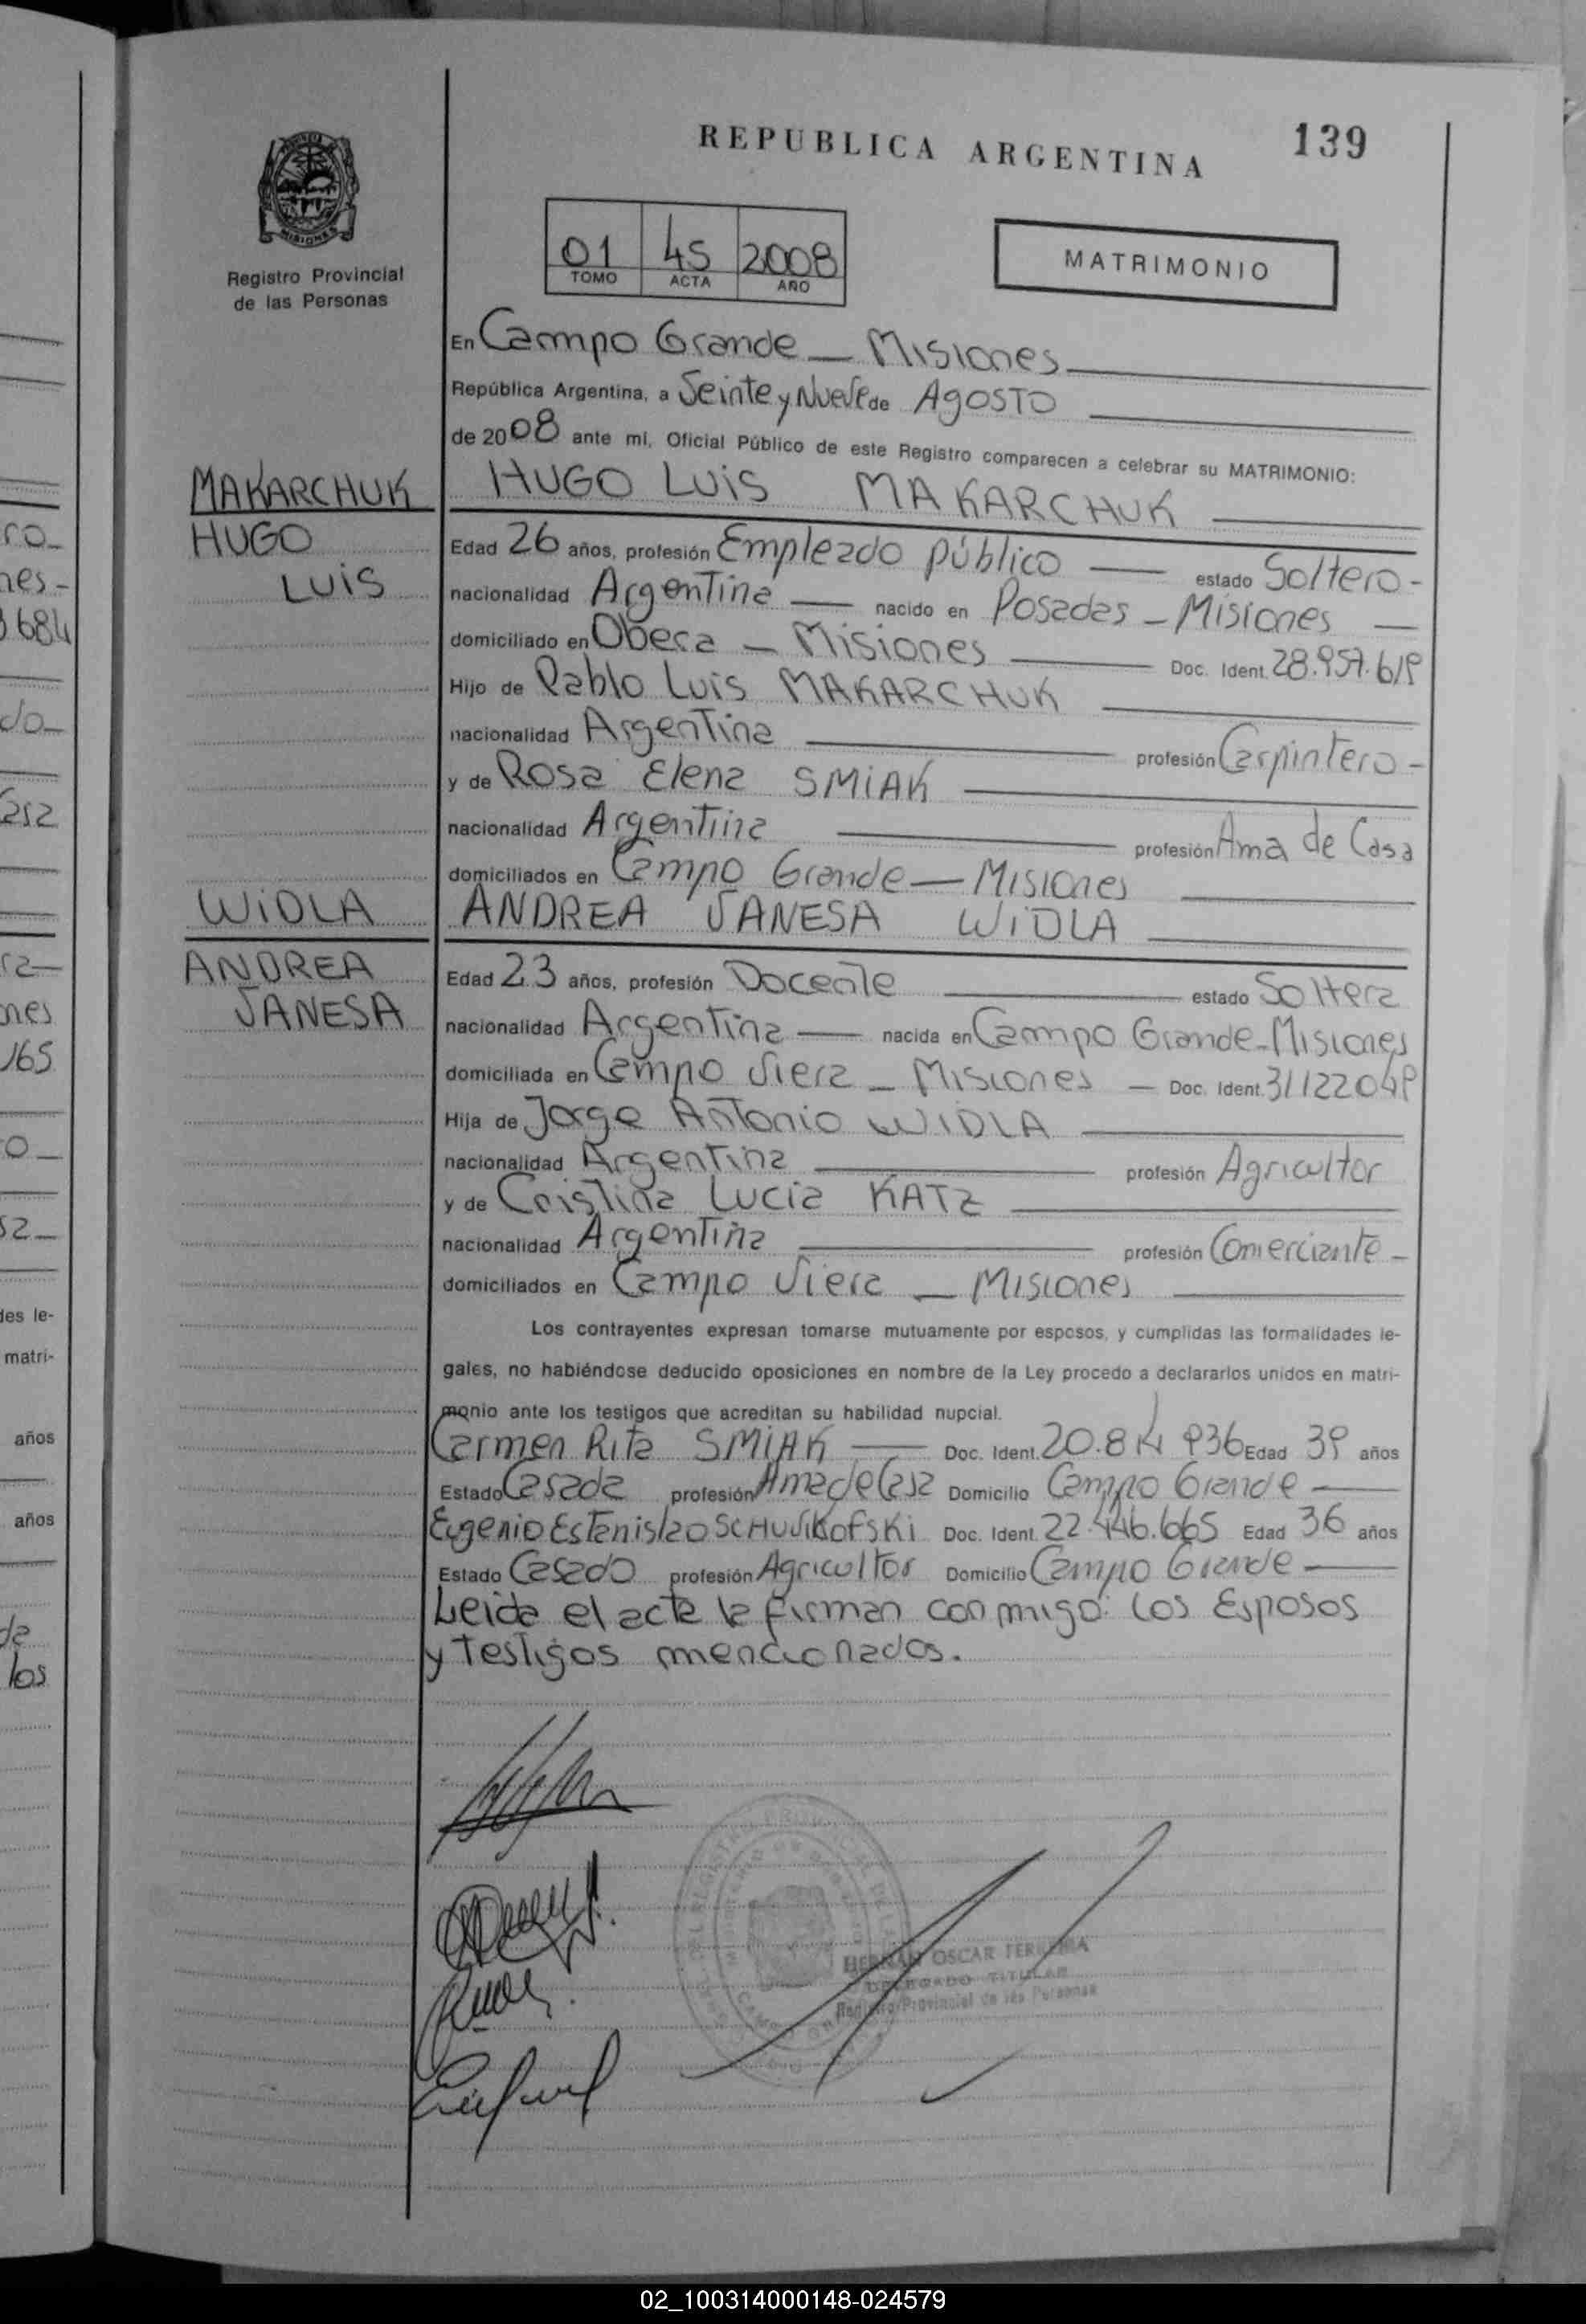 REPUBLICA ARGENTINA
139
MISIONES
Registro Provincial
de las Personas
01 45 2008
TOMO ACTA AÑO
MATRIMONIO
En Campo Grande — Misiones
República Argentina, a Veinte y Nueve de Agosto
de 2008 ante mi, Oficial Público de este Registro comparecen a celebrar su MATRIMONIO:
MAKARCHUK HUGO LUIS MAKARCHUK
HUGO Edad 26 años, profesión Empleado público — estado Soltero-
LUIS nacionalidad Argentina — nacido en Posadas - Misiones —
domiciliado en Obera — Misiones — Doc. Ident. 28.957.619
Hijo de Pablo Luis MAKARCHUK
nacionalidad Argentina — profesión Carpintero-
y de Rosa Elena SMIAK
nacionalidad Argentina — profesión Ama de Casa
domiciliados en Campo Grande — Misiones
WIDLA ANDREA VANESA WIDLA
ANDREA Edad 23 años, profesión Docente — estado Soltera
VANESA nacionalidad Argentina — nacida en Campo Grande-Misiones
domiciliada en Campo Viera — Misiones — Doc. Ident. 31122049
Hija de Jorge Antonio WIDLA
nacionalidad Argentina — profesión Agricultor
y de Cristina Lucia KATZ
nacionalidad Argentina — profesión Comerciante-
domiciliados en Campo Viera — Misiones
Los contrayentes expresan tomarse mutuamente por esposos, y cumplidas las formalidades le-
gales, no habiéndose deducido oposiciones en nombre de la Ley procedo a declararlos unidos en matri-
monio ante los testigos que acreditan su habilidad nupcial.
Carmen Rita SMIAK — Doc. Ident. 936 Edad 39 años
Estado Casada profesión Ama de Casa Domicilio Campo Grande —
Eugenio Estanislao Doc. Ident. 22.446.665 Edad 36 años
Estado Casado profesión Agricultor Domicilio Campo Grande —
Leida el acta la firman con migo: Los Esposos
y Testigos mencionados.
OSCAR
DELEGADO TITULAR
Registro Provincial de las Personas
ro-
nes-
684
do-
asa
ra-
nes
165
o-
sa-
des le-
matri-
años
años
da
los
02_100314000148-024579